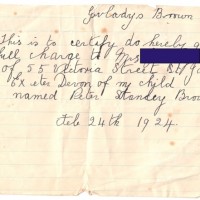 Gwladys Brown
This is to certify do hereby
full charge to Mrs
of 55 Victoria Street
Exeter Devon of my child
named Peter Stanley
Feb 24th 1924.